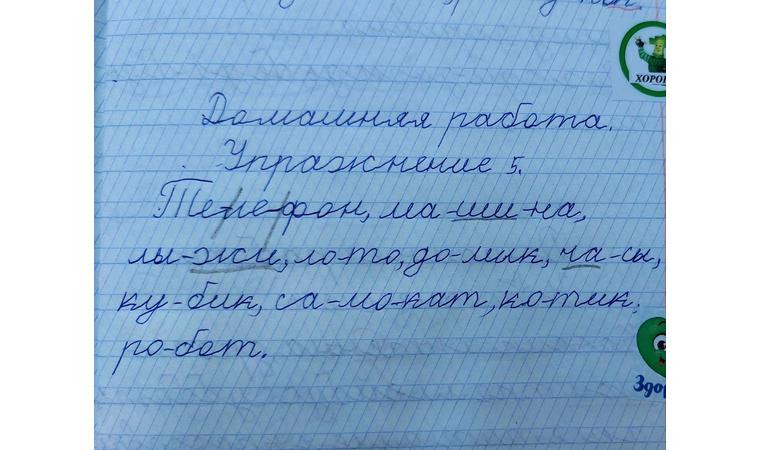 ХОРОШ
Домашняя работа.
Упражнение 5.
Те-ле-фон, ма-ши-на,
лы-жи, ло-то, до-мик, ча-сы,
ку-бик, са-мо-кат, ко-тик,
ро-бот.
Здор